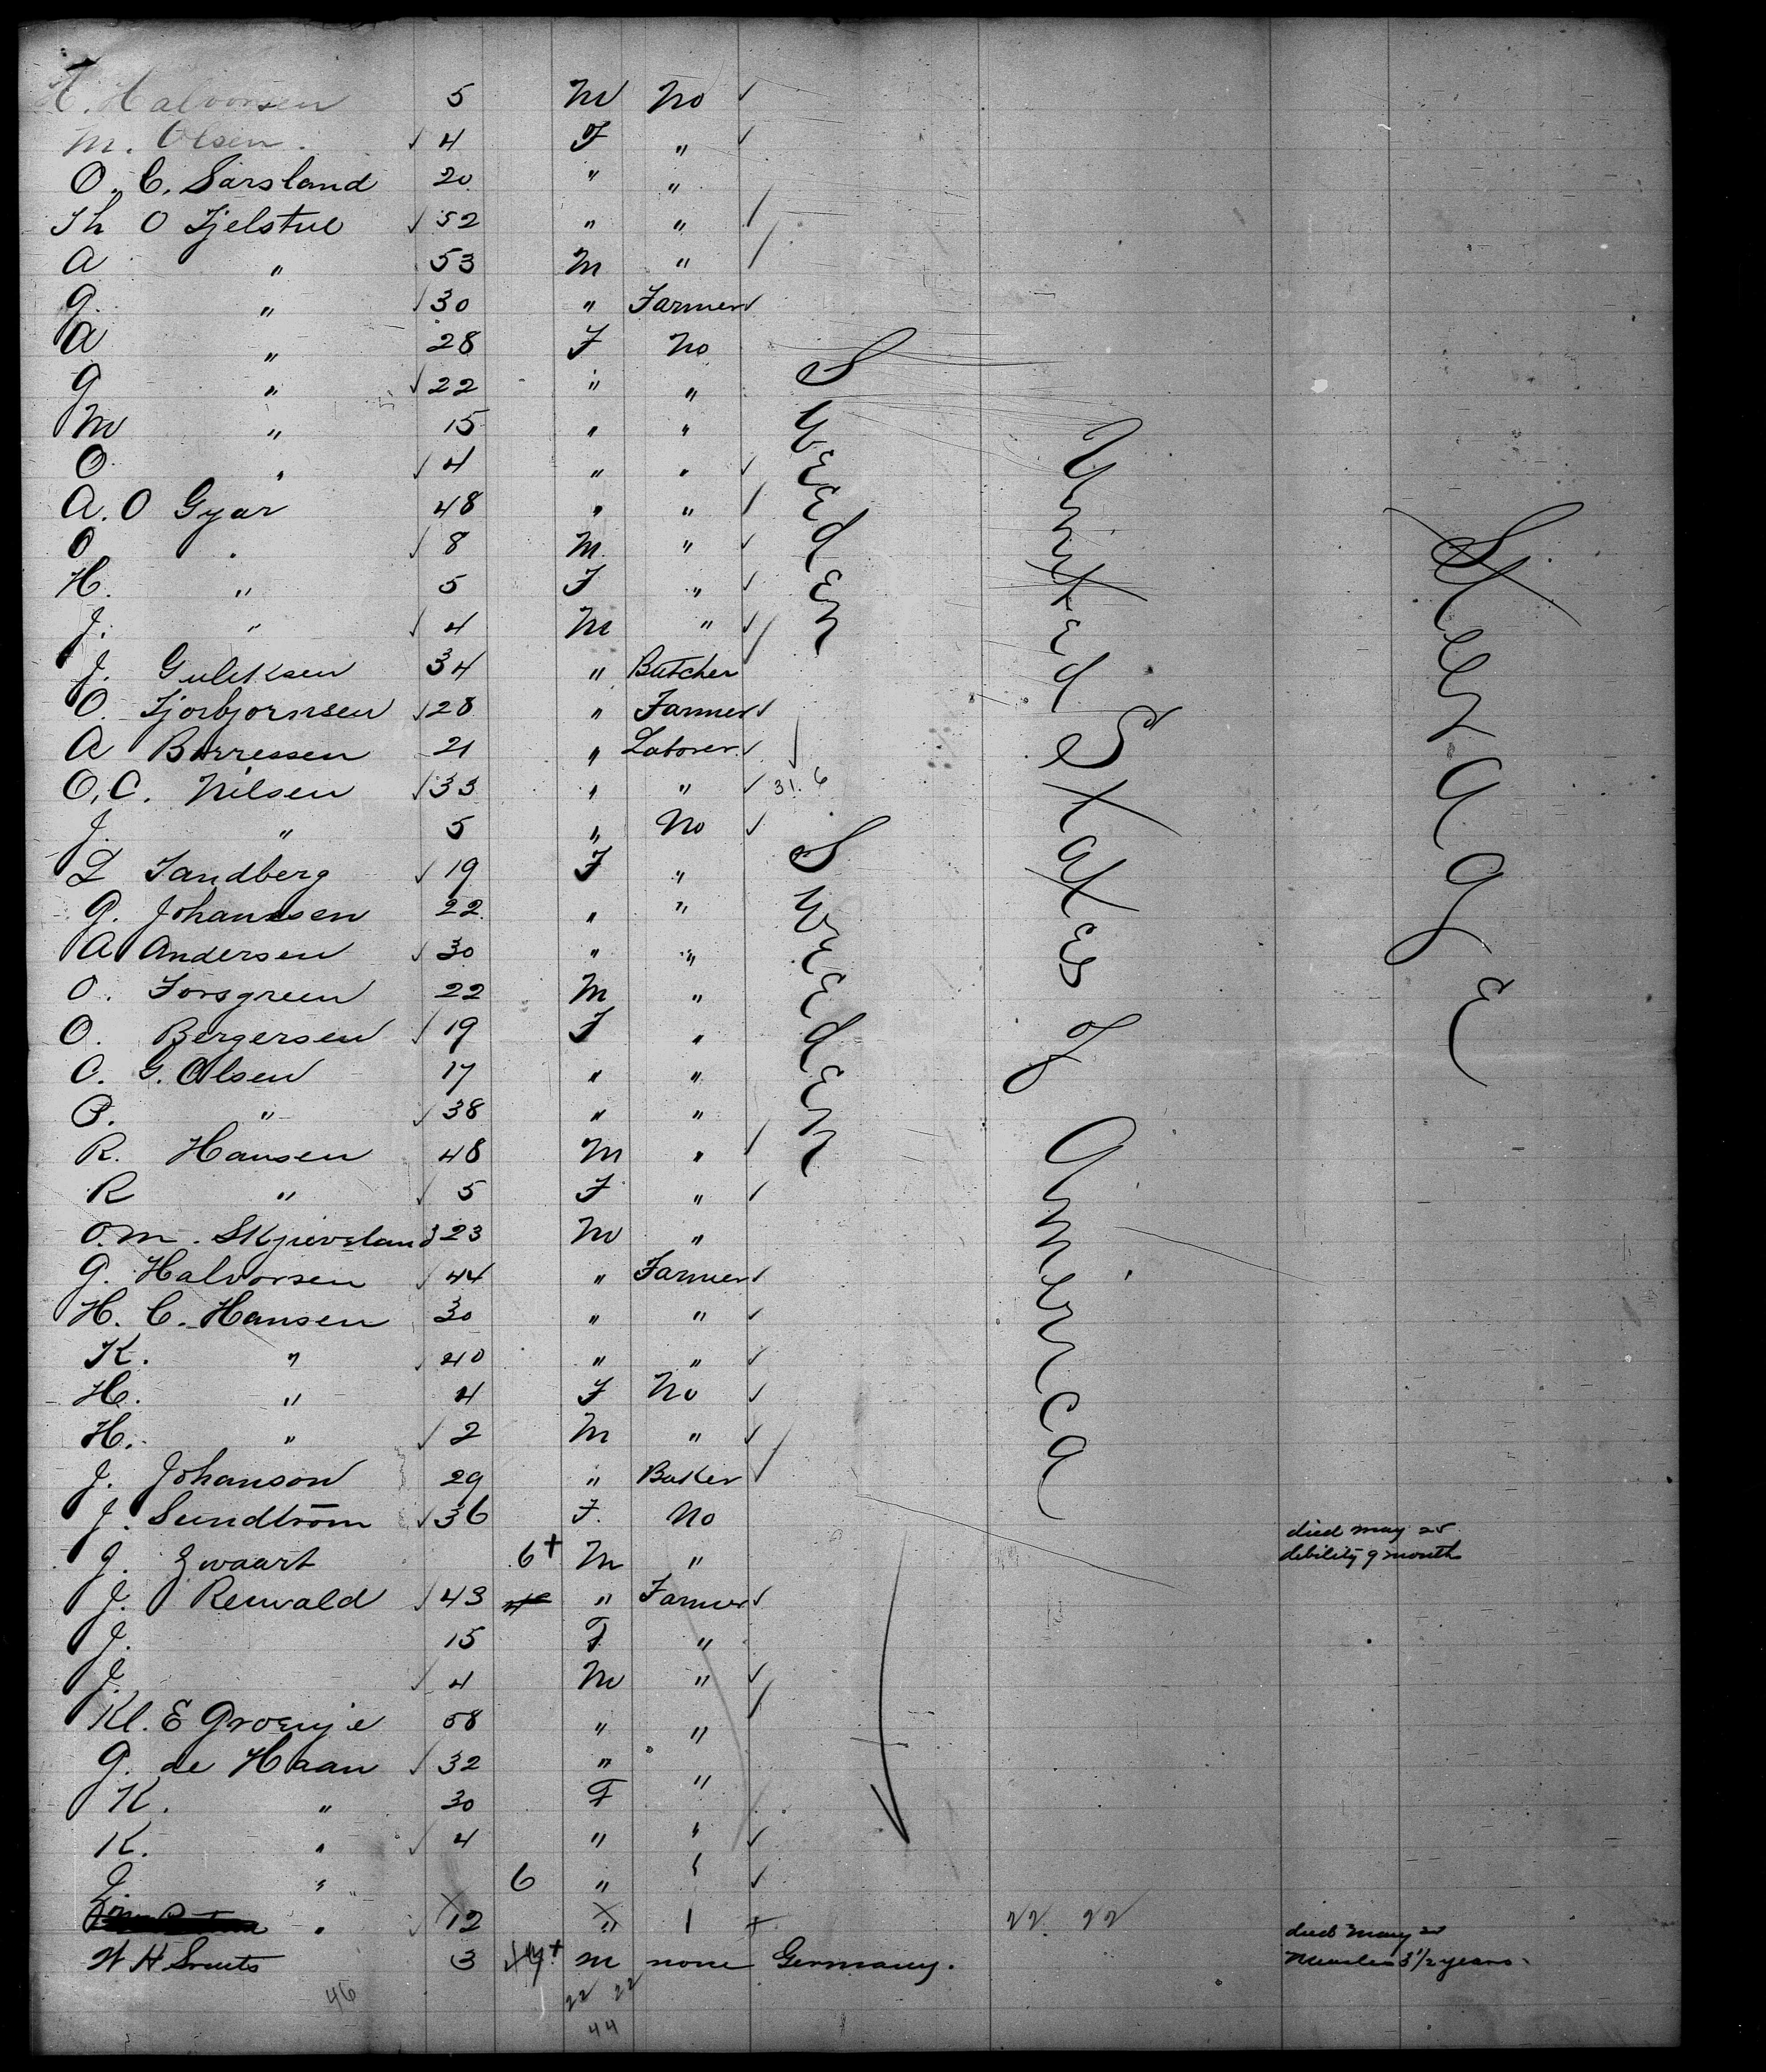 H. Halvorsen 5 M No ✓
M. Olsen. ✓ 4 F " ✓
O. C. Sarsland 20 " "
Th O Tjelstul ✓ 52 " " /
A " 53 M " /
G. " ✓ 30 " Farmer ✓
A " 28 F No
G " ✓ 22 " "
M " 15 " "
O " ✓ 4 " " ✓
A. O Gyar 48 " " /
O " ✓ 8 M " ✓
H. " 5 F " ✓
J. " ✓ 4 M " ✓ /
J. Guliksen 34 " Butcher
O. Tjorbjornsen ✓ 28 " Farmer ✓
A Borressen 21 " Laborer ✓
O. C. Nilsen ✓ 33 " " ✓ 31. 6
J. " 5 " No ✓
L Sandberg ✓ 19 F "
G. Johannsen 22 " "
A Andersen ✓ 30 " "
O. Forsgreen 22 M "
O. Bergersen ✓ 19 F "
C. G. Olsen 17 " "
B. " ✓ 38 " "
R. Hansen 48 M " /
R " ✓ 5 F " ✓
O. M. Skjieveland 23 M "
G. Halvorsen ✓ 44 " Farmer ✓
H. C. Hansen 30 " " ✓
K. " ✓ 40 " " ✓
H. " 4 F No ✓
H. " ✓ 2 M " ✓
J. Johanson 29 " Baker ✓
J. Sundtröm ✓ 36 F. No
J. Zwaart 6+ M " died may 25 debility 9 month
J. Reuvald ✓ 43 " Farmer ✓
J. 15 F "
J. ✓ 4 M " ✓
Kl. E Groenje 58 " " /
G. de Haan ✓ 32 " "
K. " 30 F "
K. " ✓ 4 " " ✓
J. " 6 " " ✓
" ✓ 12 " 22 22
W H Smuts 3 M none Germany. died May measles 3 1/2 years
46 22 22
44
Sweden
Sweden
United States of America
Steerage